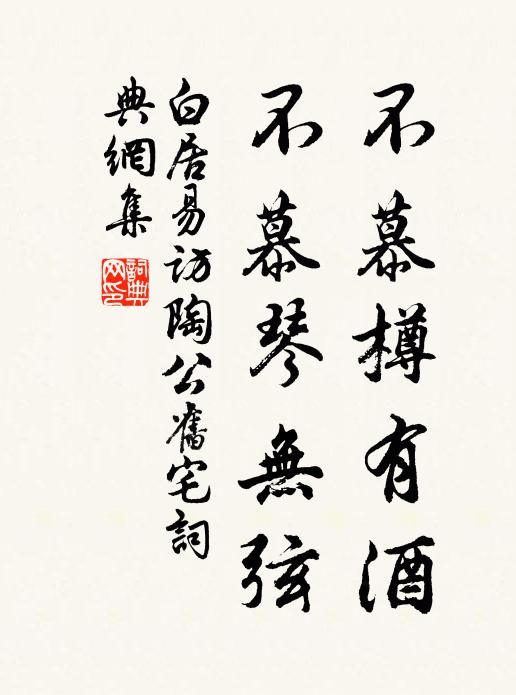 不慕樽有酒
不慕琴無弦
白居易訪陶公舊宅詞
典網集
詞典
网印